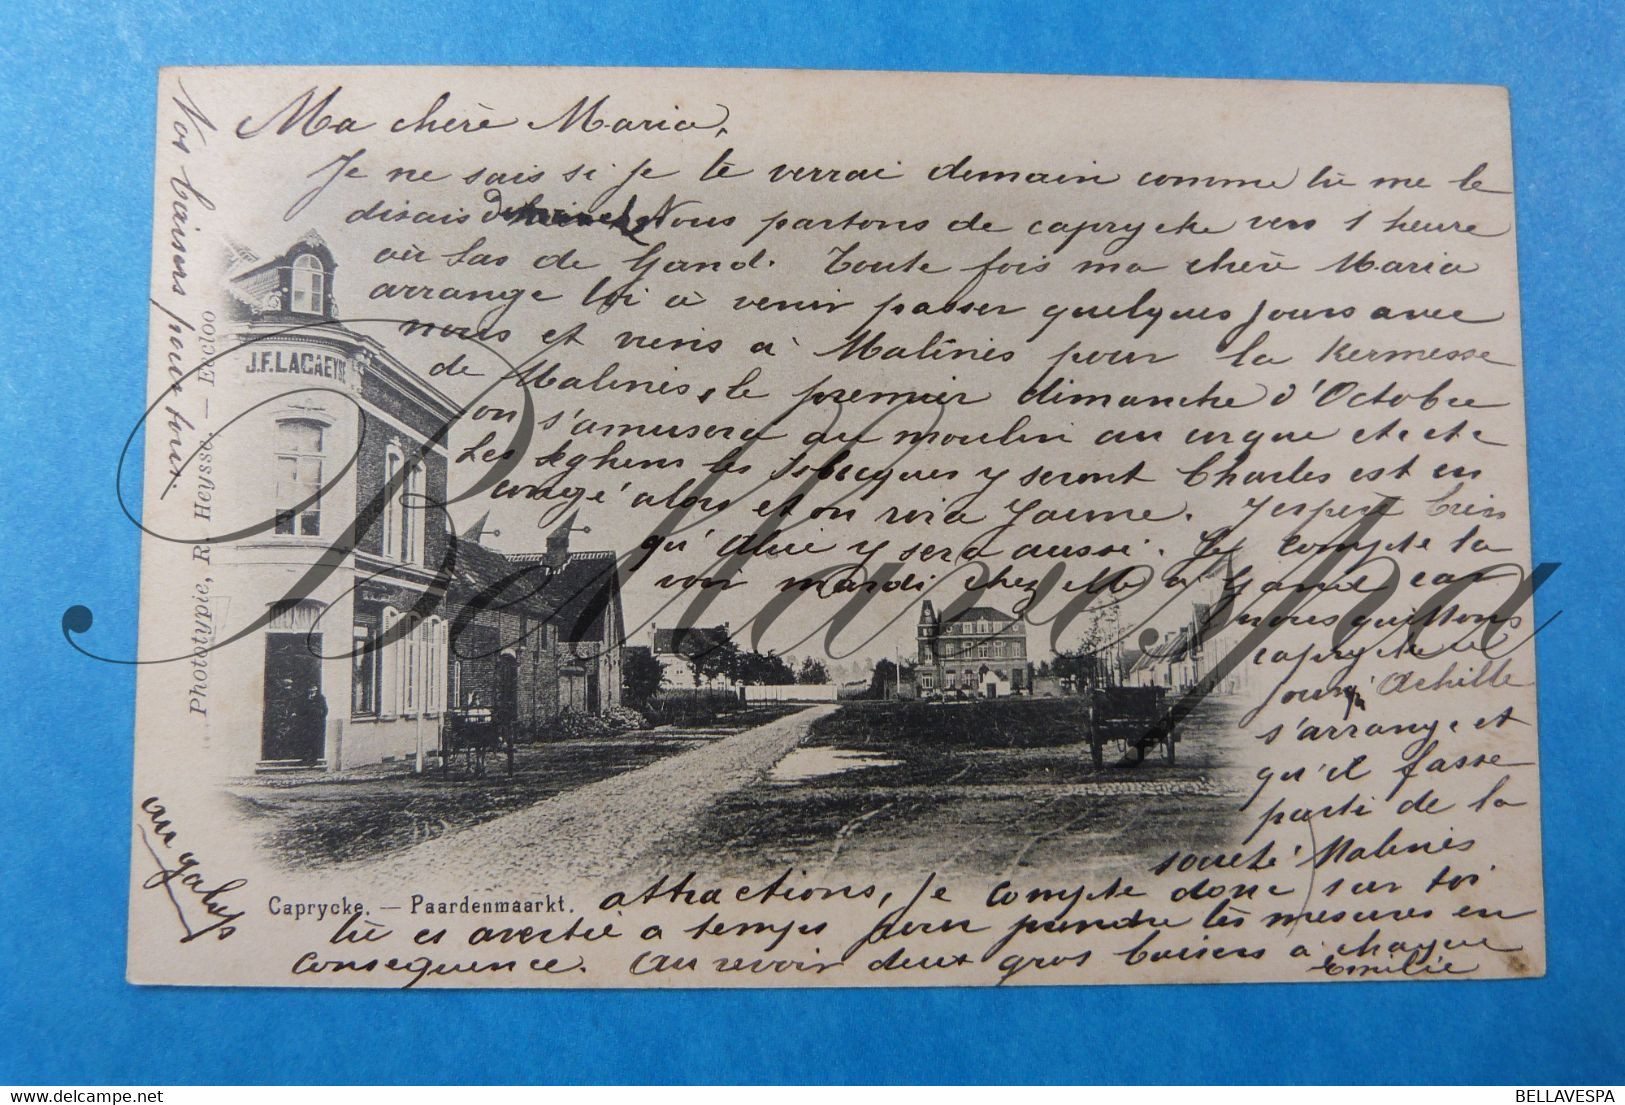 Ma chère Maria,
Je ne sais si je te verrai demain comme tu me le
disais Nous partons de caprycke vers 1 heure
au Sas de Gand. Toute fois ma chère Maria
arrange toi à venir passer quelques jours avec
nous et viens à Malines pour la Kermesse
de Malines, le premier dimanche d'Octobre
on s'amusera au moulin au cirque etc etc
Les Seghers les y seront Charles est en
congé alors et on rira Jaune. J'espère bien
qu' y sera aussi. Je compte la
voir mardi chez elle à Gand car
nous quittons
caprycke
jour qu'Achille
s'arrange et
qu'il fasse
parti de la
société Malines
attractions, je compte donc sur toi
tu es avertie a temps pour prendre tes mesures en
consequence. Au revoir deux gros baisers à chaque
Emilie
Vos baisers pour tous.
au galop
J.F. LACAEYSE
Phototypie, R. Heysse. — Eecloo
Caprycke. — Paardenmaarkt.
Bellavespa
BELLAVESPA